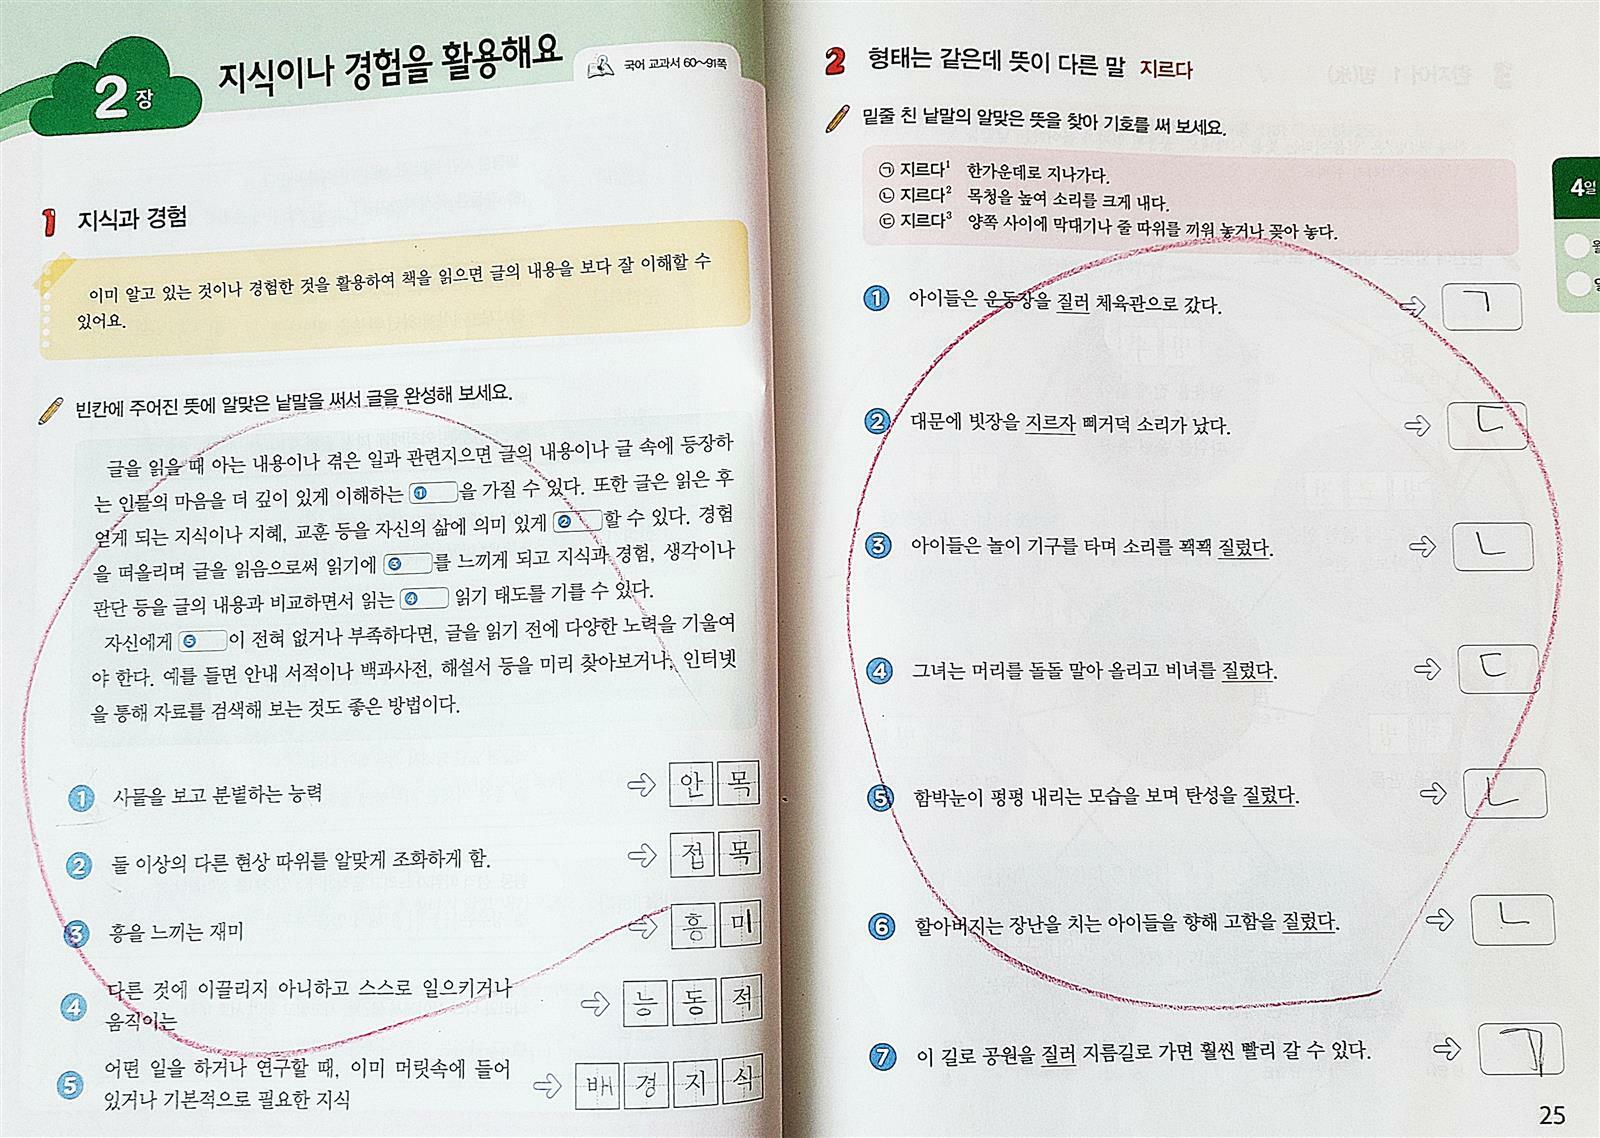 2장
지식이나 경험을 활용해요
국어 교과서 60~91쪽
1 지식과 경험
이미 알고 있는 것이나 경험한 것을 활용하여 책을 읽으면 글의 내용을 보다 잘 이해할 수
있어요.
빈칸에 주어진 뜻에 알맞은 낱말을 써서 글을 완성해 보세요.
글을 읽을 때 아는 내용이나 겪은 일과 관련지으면 글의 내용이나 글 속에 등장하
는 인물의 마음을 더 깊이 있게 이해하는 ①을 가질 수 있다. 또한 글은 읽은 후
얻게 되는 지식이나 지혜, 교훈 등을 자신의 삶에 의미 있게 ②할 수 있다. 경험
을 떠올리며 글을 읽음으로써 읽기에 ③를 느끼게 되고 지식과 경험, 생각이나
판단 등을 글의 내용과 비교하면서 읽는 ④ 읽기 태도를 기를 수 있다.
자신에게 ⑤이 전혀 없거나 부족하다면, 글을 읽기 전에 다양한 노력을 기울여
야 한다. 예를 들면 안내 서적이나 백과사전, 해설서 등을 미리 찾아보거나, 인터넷
을 통해 자료를 검색해 보는 것도 좋은 방법이다.
① 사물을 보고 분별하는 능력 ⇨ 안목
② 둘 이상의 다른 현상 따위를 알맞게 조화하게 함. ⇨ 접목
③ 흥을 느끼는 재미 ⇨ 흥미
④ 다른 것에 이끌리지 아니하고 스스로 일으키거나
움직이는 ⇨ 능동적
⑤ 어떤 일을 하거나 연구할 때, 이미 머릿속에 들어
있거나 기본적으로 필요한 지식 ⇨ 배경지식
2 형태는 같은데 뜻이 다른 말 지르다
밑줄 친 낱말의 알맞은 뜻을 찾아 기호를 써 보세요.
㉠ 지르다¹ 한가운데로 지나가다.
㉡ 지르다² 목청을 높여 소리를 크게 내다.
㉢ 지르다³ 양쪽 사이에 막대기나 줄 따위를 끼워 놓거나 꽂아 놓다.
① 아이들은 운동장을 질러 체육관으로 갔다. ⇨ ㄱ
② 대문에 빗장을 지르자 삐거덕 소리가 났다. ⇨ ㄷ
③ 아이들은 놀이 기구를 타며 소리를 꽥꽥 질렀다. ⇨ ㄴ
④ 그녀는 머리를 돌돌 말아 올리고 비녀를 질렀다. ⇨ ㄷ
⑤ 함박눈이 펑펑 내리는 모습을 보며 탄성을 질렀다. ⇨ ㄴ
⑥ 할아버지는 장난을 치는 아이들을 향해 고함을 질렀다. ⇨ ㄴ
⑦ 이 길로 공원을 질러 지름길로 가면 훨씬 빨리 갈 수 있다. ⇨ ㄱ
4일
25